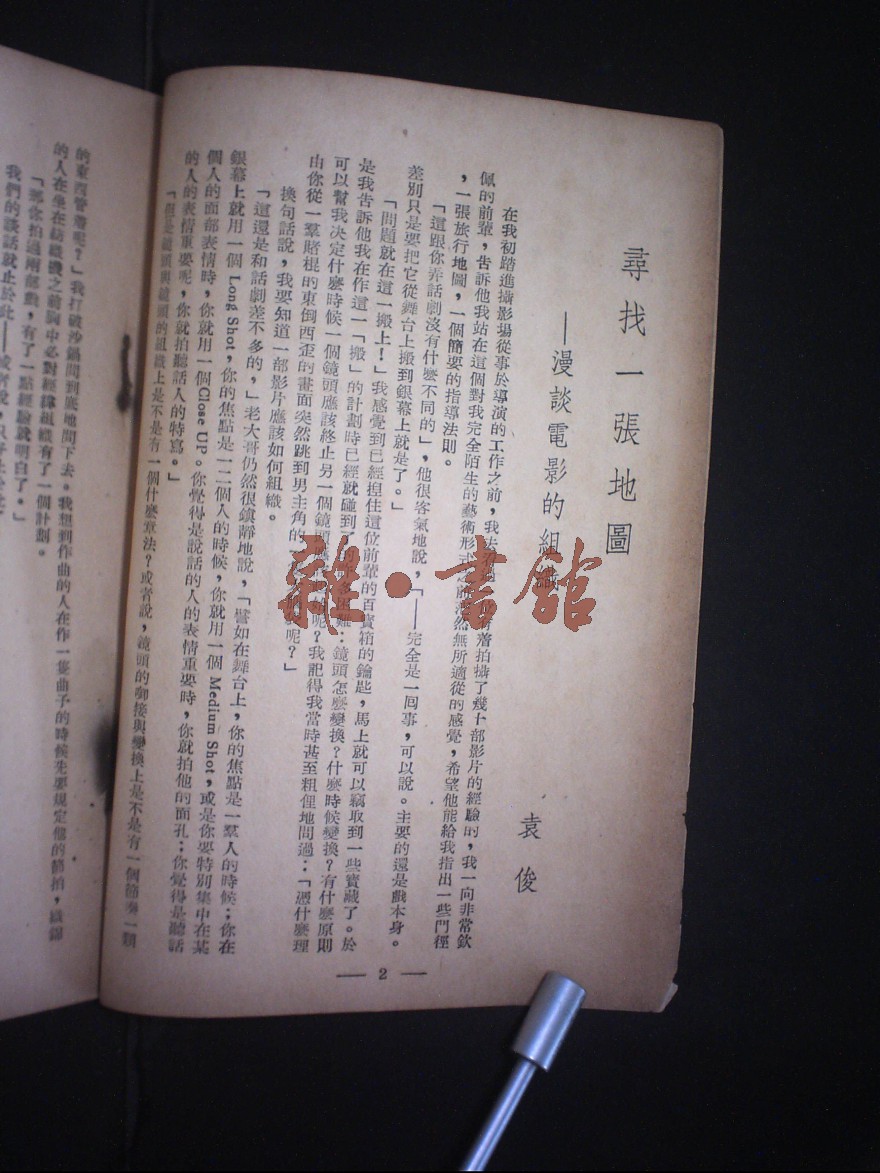 尋找一張地圖
——漫談電影的組織
袁俊
在我初踏進攝影場從事於導演的工作之前，我去 着拍攝了幾十部影片的經驗的，我一向非常欽
佩的前輩，告訴他我站在這個對我完全陌生的藝術形式之前茫然無所適從的感覺，希望他能給我指出一些門徑
，一張旅行地圖，一個簡要的指導法則。
「這跟你弄話劇沒有什麼不同的」，他很客氣地說，「——完全是一回事，可以說。主要的還是戲本身。
差別只是要把它從舞台上搬到銀幕上就是了。」
「問題就在這一搬上！」我感覺到已經揑住這位前輩的百寶箱的鑰匙，馬上就可以竊取到一些寶藏了。於
是我告訴他我在作這一「搬」的計劃時已經就碰到了許多困難：鏡頭怎麼變換？什麼時候變換？有什麼原則
可以幫我決定什麼時候一個鏡頭應該終止另一個鏡頭應 開始呢？我記得我當時甚至粗俚地問過：「憑什麼理
由你從一羣賭棍的東倒西歪的畫面突然跳到男主角的 呢？」
換句話說，我要知道一部影片應該如何組織。
「這還是和話劇差不多的，」老大哥仍然很鎮靜地說，「譬如在舞台上，你的焦點是一羣人的時候；你在
銀幕上就用一個 Long Shot，你的焦點是一二個人的時候，你就用一個 Medium Shot，或是你要特別集中在某
個人的面部表情時，你就用一個 Close UP。你覺得是說話的人的表情重要時，你就拍他的面孔；你覺得是聽話
的人的表情重要呢，你就拍聽話人的特寫。」
「但是鏡頭與鏡頭的組織上是不是有一個什麼章法？或者說，鏡頭的啣接與變換上是不是有一個節奏一類
— 2 —
的東西管着呢？」我打破沙鍋問到底地問下去。我想到作曲的人在作一隻曲子的時候先要規定他的節拍，織錦
的人在坐在紡織機之前胸中必對經緯組織有了一個計劃。
「那你拍過兩部戲，有了一點經驗就明白了。」
我們的談話就止於此——或者說，
雜·書館